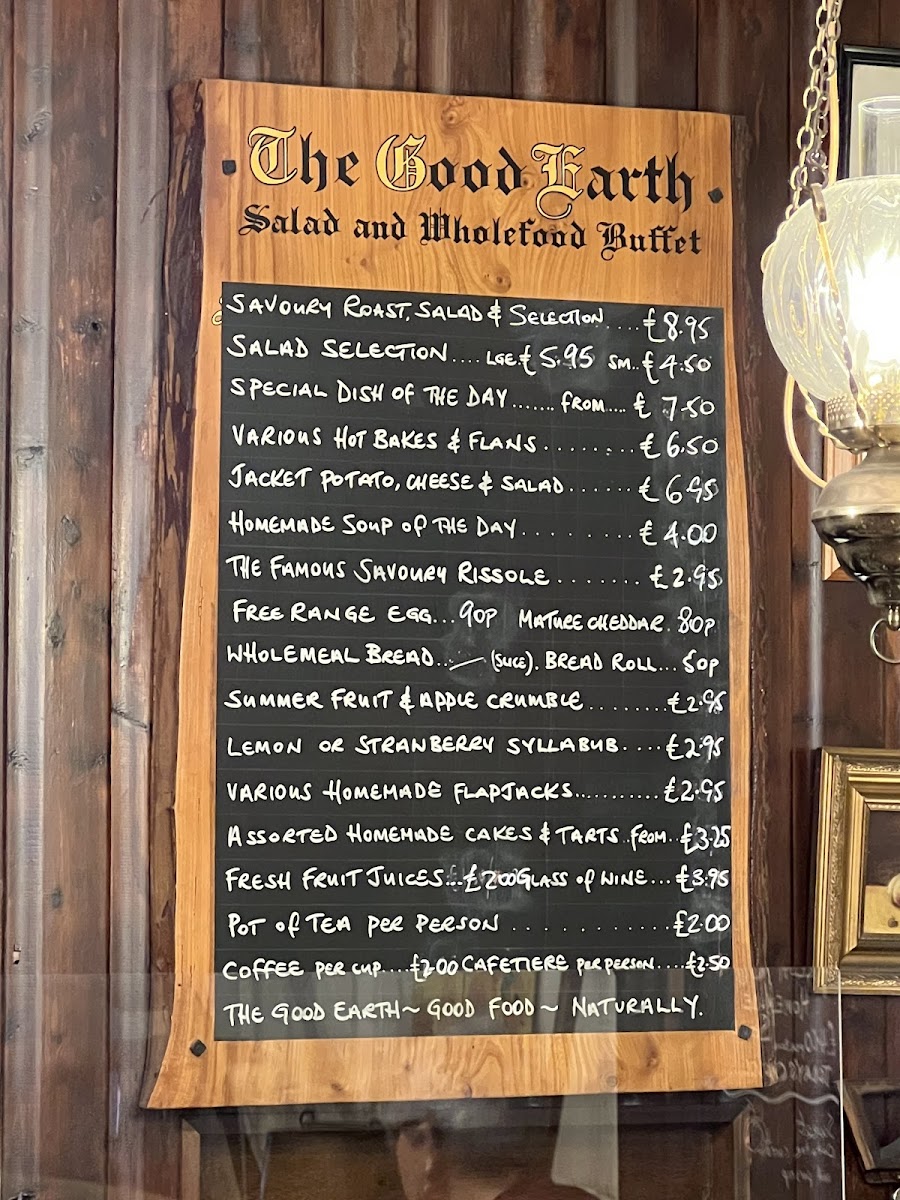 The Good Earth
Salad and Wholefood Buffet
SAVOURY ROAST, SALAD & SELECTION ....£8.95
SALAD SELECTION.... LGE £5.95 SM..£4.50
SPECIAL DISH OF THE DAY....... FROM.... £ 7.50
VARIOUS HOT BAKES & FLANS........£6.50
JACKET POTATO, CHEESE & SALAD......£6.95
HOMEMADE SOUP OF THE DAY........£4.00
THE FAMOUS SAVOURY RISSOLE........£2.95
FREE RANGE EGG...90p MATURE CHEDDAR.80p
WHOLEMEAL BREAD... (SLICE). BREAD ROLL... 50p
SUMMER FRUIT & APPLE CRUMBLE........£2.95
LEMON OR STRANBERRY SYLLABUB....£2.95
VARIOUS HOMEMADE FLAPJACKS...........£2.95
ASSORTED HOMEMADE CAKES & TARTS..FROM..£3.25
FRESH FRUIT JUICES...£2.00 GLASS OF WINE...£3.95
POT OF TEA PER PERSON ...........£2.00
COFFEE PER CUP....£2.00 CAFETIERE PER PERSON....£2.50
THE GOOD EARTH ~ GOOD FOOD ~ NATURALLY.